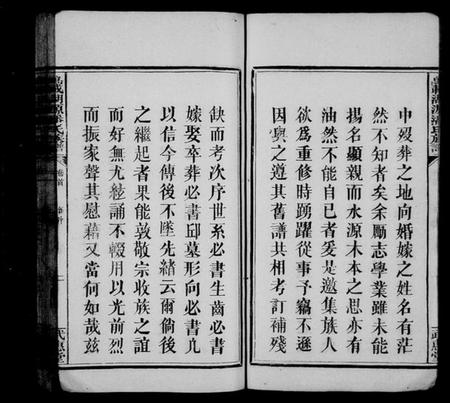 中歿葬之地向婚嫁之姓名有茫
然不知者矣余勵志學業雖未能
揚名顯親而水源木本之思亦有
油然不能自已者爰是邀集族人
欲為重修時踴躍從事予竊不遜
因與之遵其舊譜共相考訂補殘
缺而考次序世系必書生齒必書
嫁娶卒葬必書邱墓形向必書凡
以信今傳後不墜先緒云爾倘後
之繼起者果能敦敬宗收族之誼
而好無尤慫誦不輟用以光前烈
而振家聲其慰藉又當何如哉茲